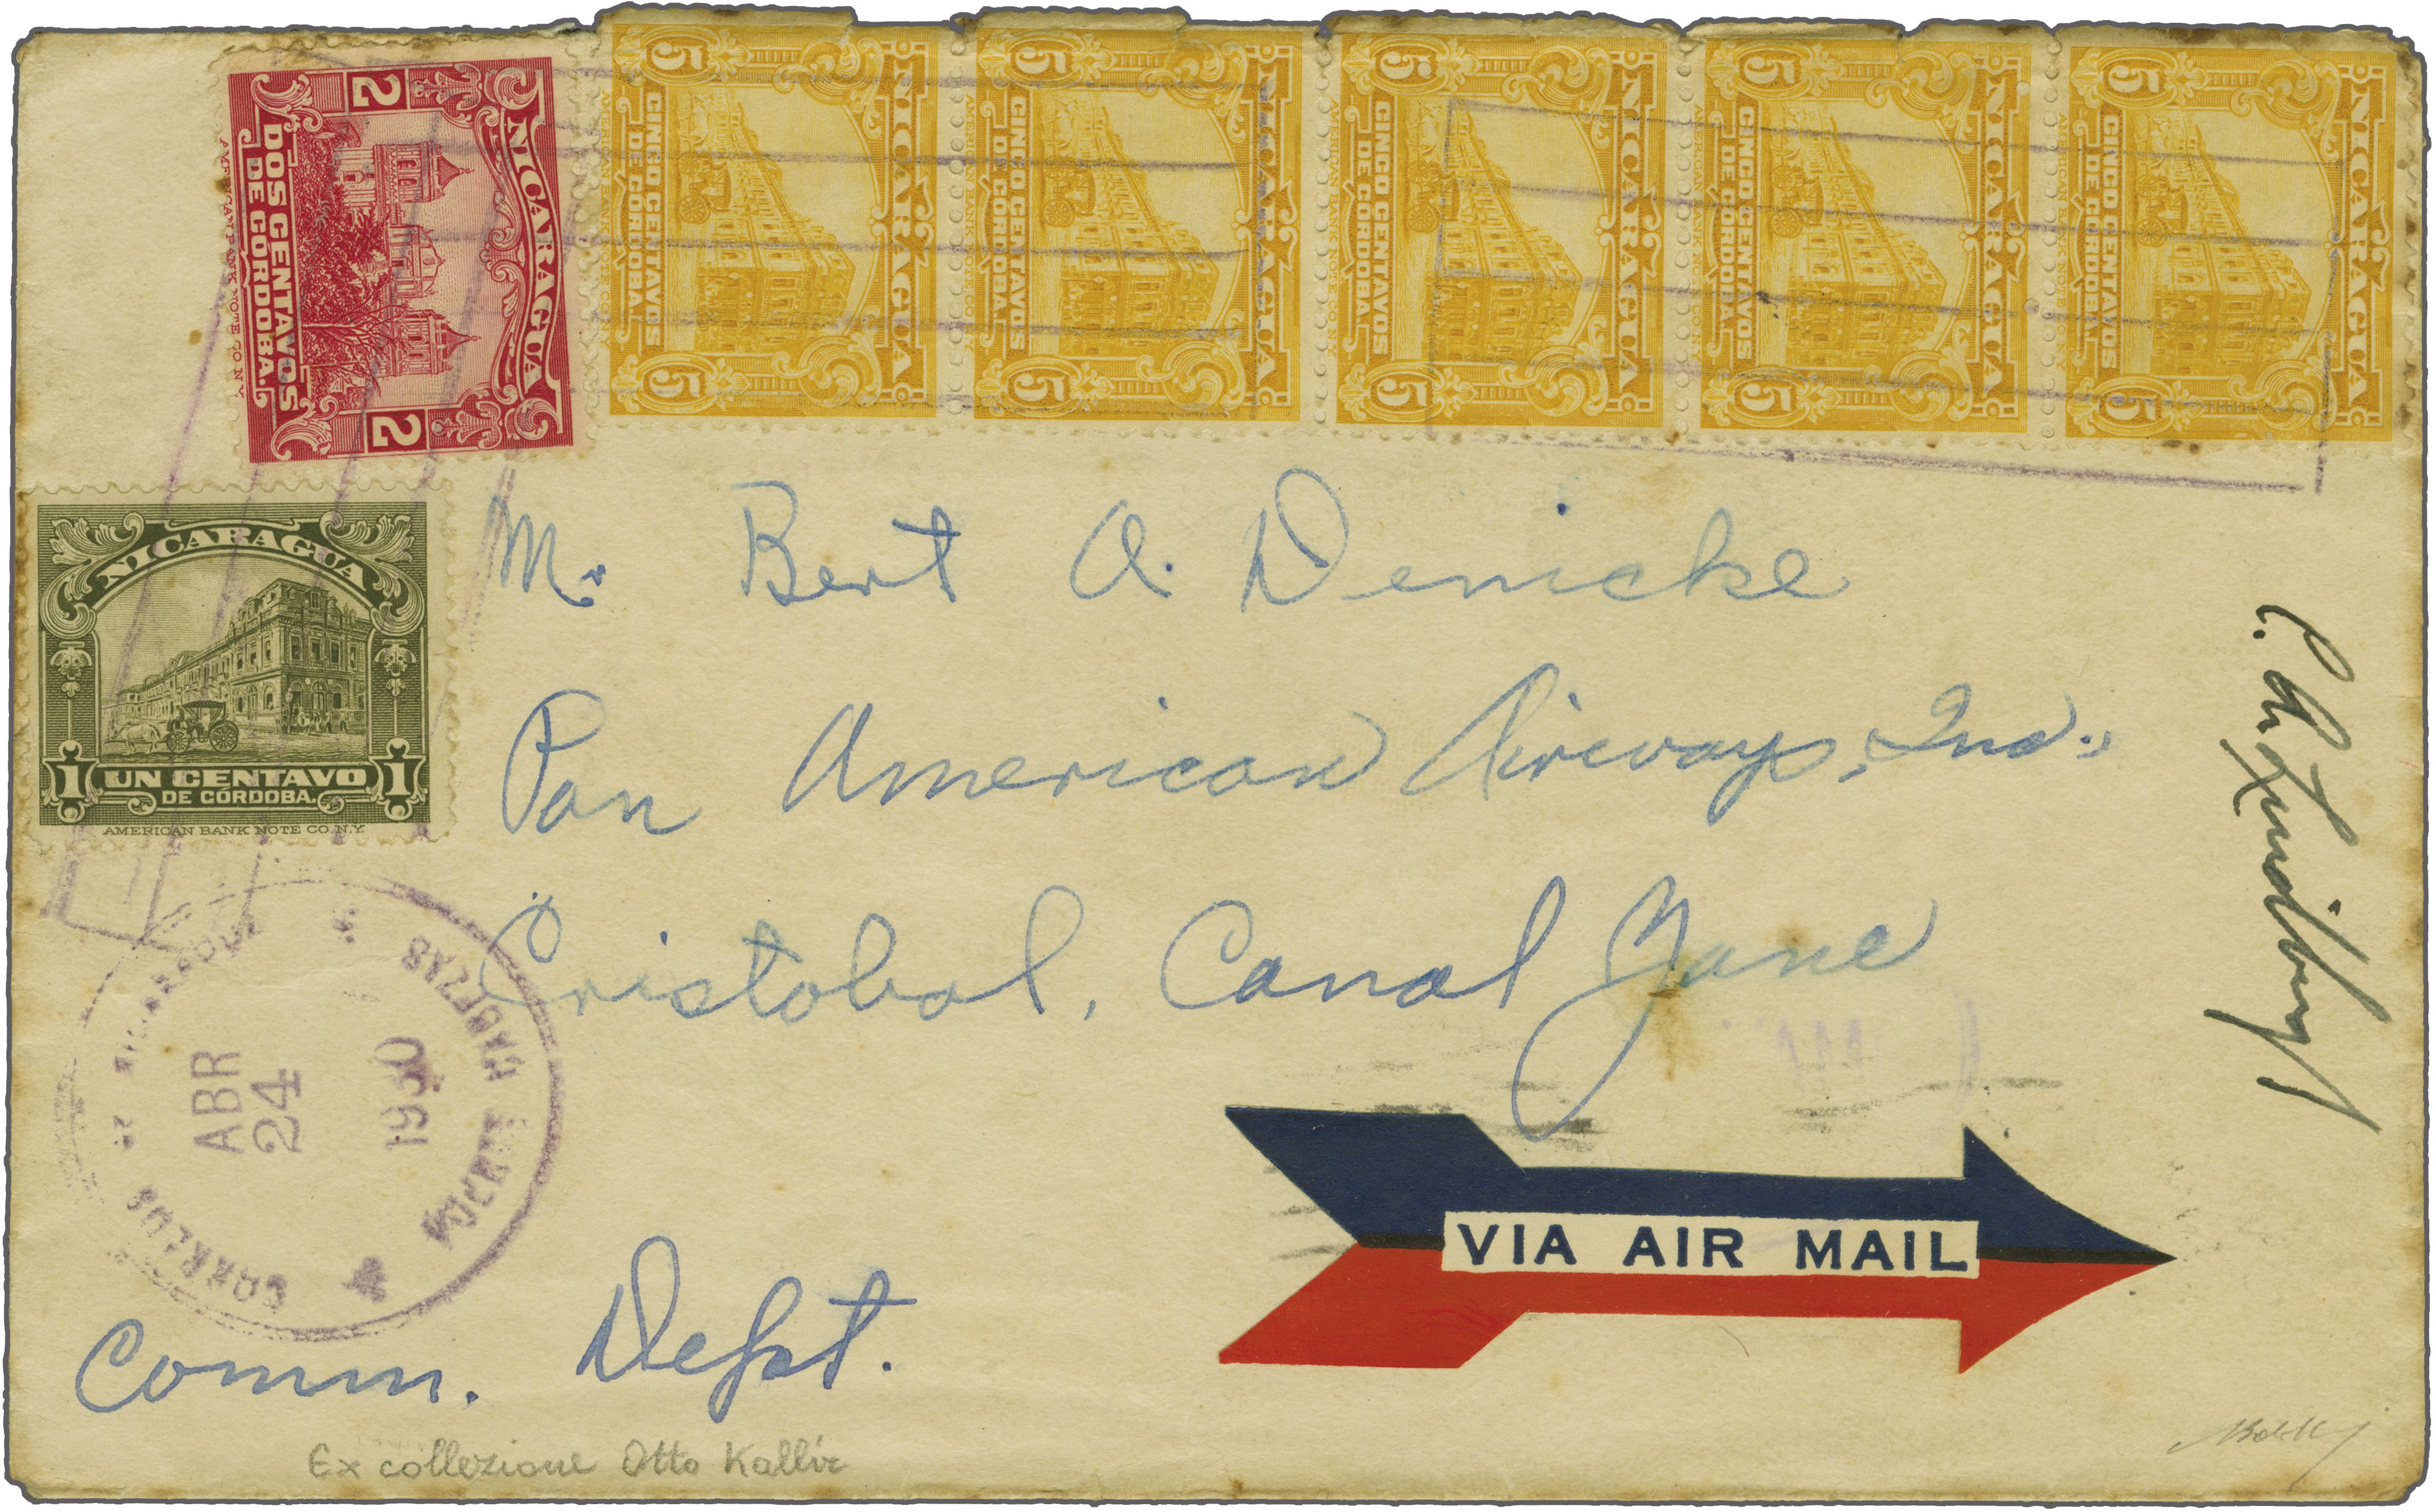 2 2
NICARAGUA
DOS CENTAVOS
DE CORDOBA.
AMERICAN BANK NOTE CO. N.Y.
5 5
NICARAGUA
CINCO CENTAVOS
DE CORDOBA
AMERICAN BANK NOTE CO. N.Y.
5 5
NICARAGUA
CINCO CENTAVOS
DE CORDOBA
AMERICAN BANK NOTE CO. N.Y.
5 5
NICARAGUA
CINCO CENTAVOS
DE CORDOBA
AMERICAN BANK NOTE CO. N.Y.
5 5
NICARAGUA
CINCO CENTAVOS
DE CORDOBA
AMERICAN BANK NOTE CO. N.Y.
5 5
NICARAGUA
CINCO CENTAVOS
DE CORDOBA
AMERICAN BANK NOTE CO. N.Y.
NICARAGUA
1 UN CENTAVO 1
DE CÓRDOBA
AMERICAN BANK NOTE CO. N.Y.
Mr. Bert A. Denicke
Pan American Airways, Inc.,
Cristobal, Canal Zone
C. A. Lindbergh
CORREOS
PUERTO CABEZAS
ABR
24
1930
VIA AIR MAIL
Comm. Dept.
Ex collezione Otto Kallir